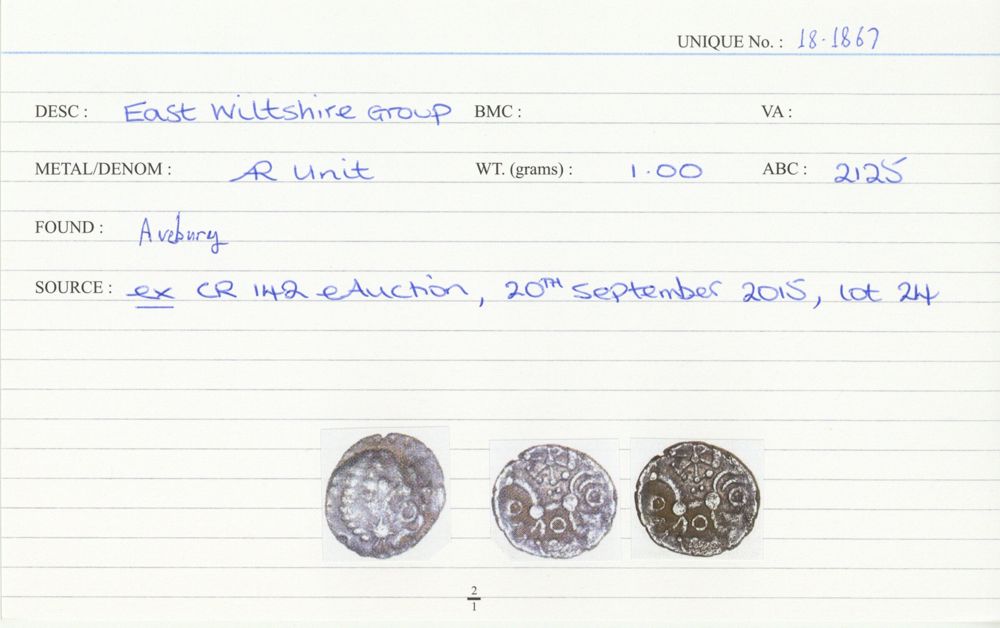 UNIQUE No. : 18·1867
DESC : East Wiltshire Group BMC : VA :
METAL/DENOM : AR Unit WT. (grams) : 1.00 ABC : 2125
FOUND : Avebury
SOURCE : ex CR 142 eAuction, 20TH September 2015, lot 24
2
1